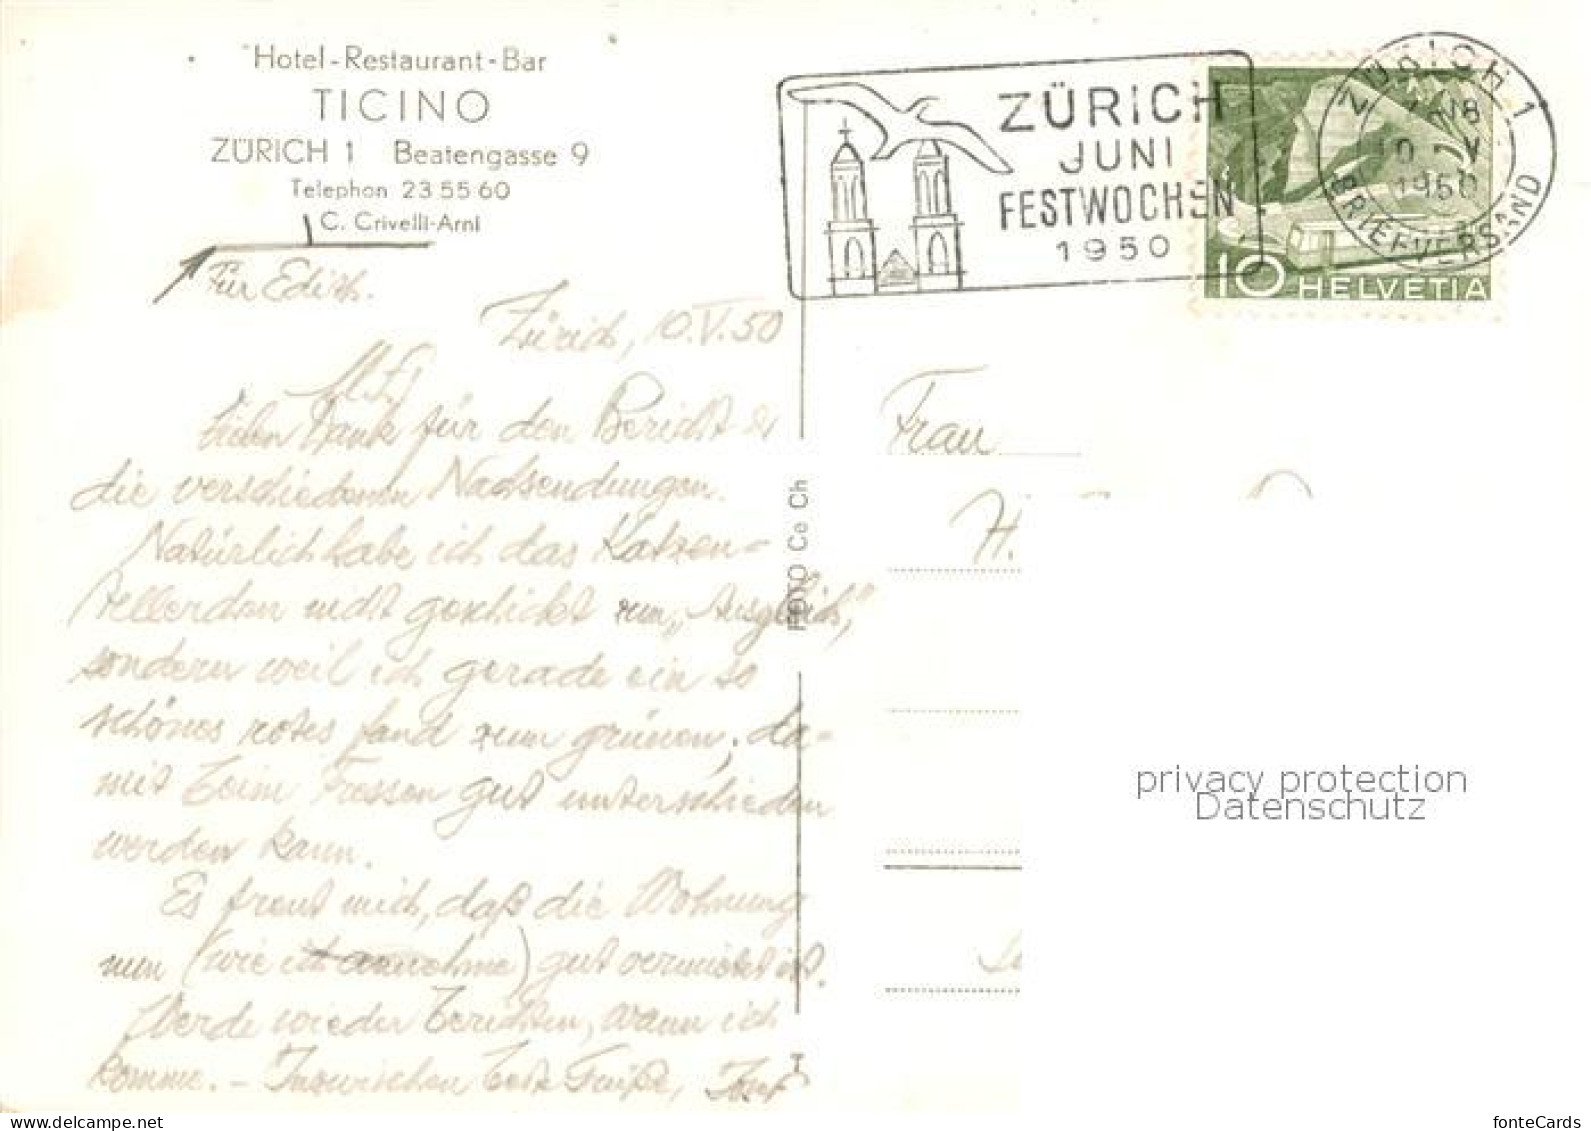 Hotel-Restaurant-Bar
TICINO
ZÜRICH 1 Beatengasse 9
Telephon 23 55 60
C. Crivelli-Arni
Für Edith.
Zürich, 10.V.50
Vielen Dank für den Bericht &
die verschiedenen Nachsendungen.
Natürlich habe ich das Katzen-
tellerchen nicht geschickt zum „Ausgleich,"
sondern weil ich gerade ein so
schönes rotes fand zum grünen, da-
mit beim Fressen gut unterschieden
werden kann.
Es freut mich, daß die Wohnung
nun (wie ich annehme) gut vermietet ist.
Werde wieder berichten, wann ich
komme. – Inzwischen beste Grüße,
FOTO Ce Ch
ZÜRICH
JUNI
FESTWOCHEN
1950
ZÜRICH 1
10. V
1950
BRIEFVERSAND
10 HELVETIA
Frau
H.
privacy protection
Datenschutz
www.delcampe.net
fonteCards